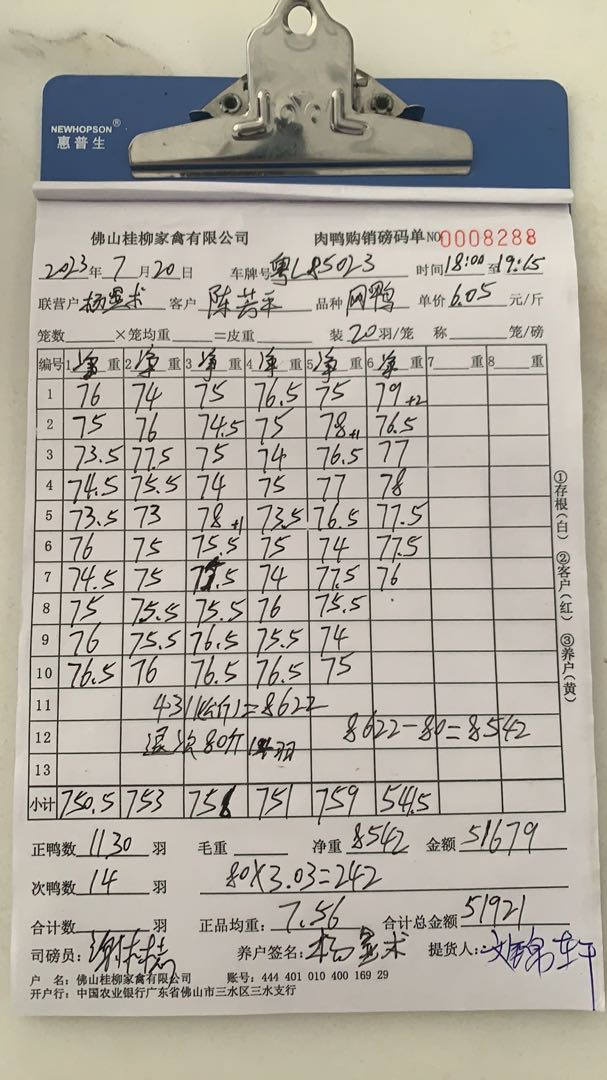 NEWHOPSON®
惠普生
佛山桂柳家禽有限公司 肉鸭购销磅码单 NO 0008288
2023年 7月 20日 车牌号 粤L85023 时间 18:00 至 19:15
联营户 客户 陈 品种 网鸭 单价 6.05 元/斤
笼数 ×笼均重 =皮重 装 20 羽/笼 称 笼/磅
编号 1 净重 2 净重 3 净重 4 净重 5 净重 6 净重 7 重 8 重
1 76 74 75 76.5 75 79 +2
2 75 76 74.5 75 78 +1 76.5
3 73.5 77.5 75 74 76.5 77
4 74.5 75.5 74 75 77 78
5 73.5 73 78 +1 73.5 76.5 77.5
6 76 75 75.5 75 74 77.5
7 74.5 75 75.5 74 77.5 76
8 75 75.5 75.5 76 75.5
9 76 75.5 76.5 75.5 74
10 76.5 76 76.5 76.5 75
11 431(公斤)=8622
12 退次80斤 羽 8622-80=8542
13
小计 750.5 753 751 759 54.5
正鸭数 1130 羽 毛重 净重 8542 金额 51679
次鸭数 14 羽 80×3.03=242
合计数 羽 正品均重: 7.56 合计总金额 51921
司磅员: 养户签名: 提货人:
户 名: 佛山桂柳家禽有限公司 账号: 444 401 010 400 169 29
开户行: 中国农业银行广东省佛山市三水区三水支行
①存根(白) ②客户(红) ③养户(黄)